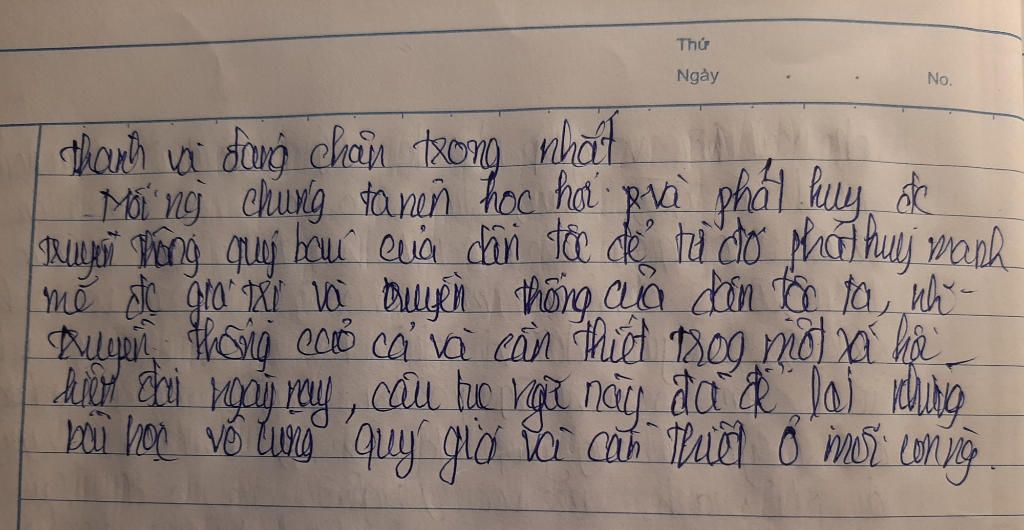 Thứ
Ngày . . No.
thanh và đang chân trọng nhất
Mỗi ng chúng ta nên học hỏi và phát huy đc
truyền thống quý báu của dân tộc để từ đó phát huy mạnh
mẽ đc giá trị và truyền thống của dân tộc ta, nh-
truyền thống cao cả và cần thiết trog một xã hội
hiện đại ngày nay, câu tục ngữ này đã để lại những
bài học vô cùng quý giá và cần thiết ở mỗi con ng.